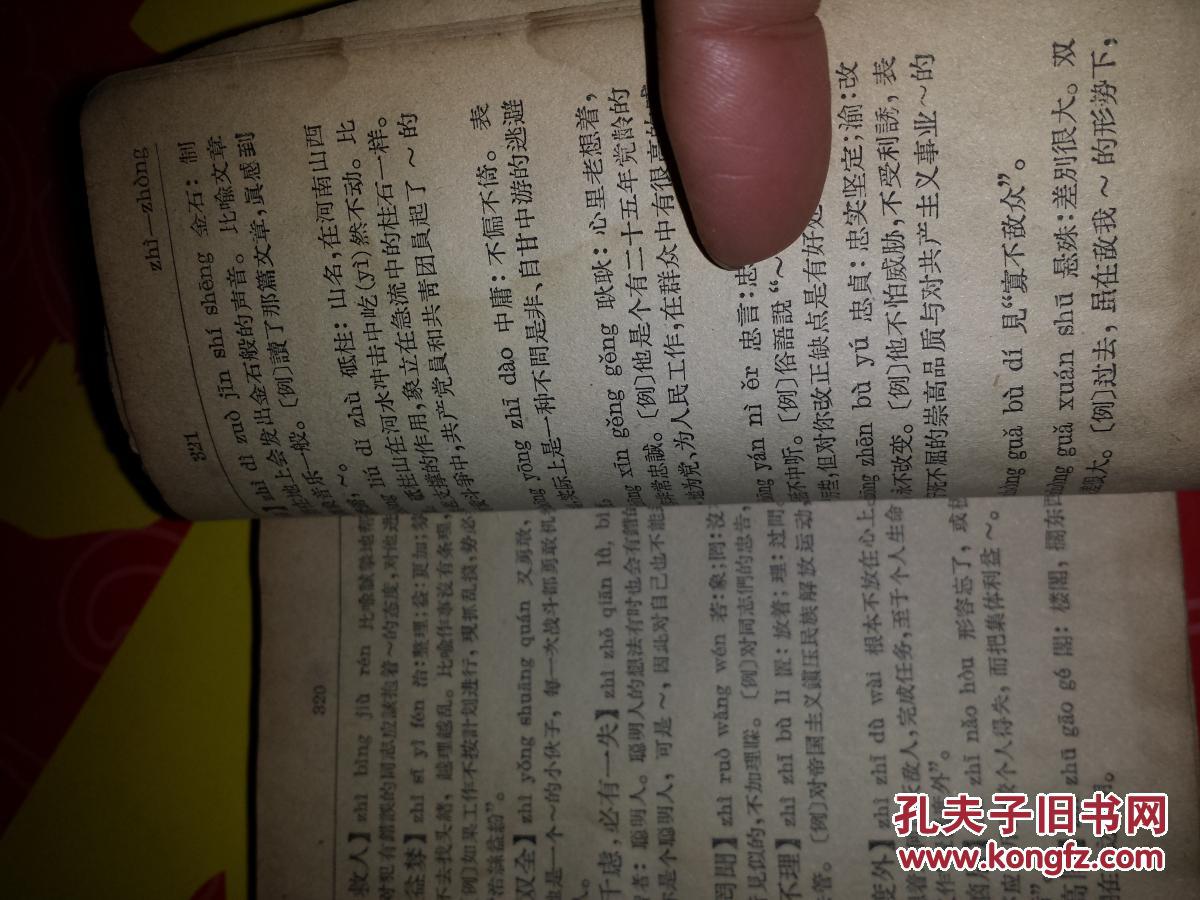 320
救人】 zhì bìng jiù rén 比喻誠摯地幫
对犯有錯誤的同志应該抱着～的态度，对他进
益棼】 zhì sī yì fén 治：整理；益：更加；棼
不去找头緒，越理越乱。比喻作事沒有条理，
〔例〕如果工作不按計划进行，現抓乱摸，势必
治絲益紛”。
双全】 zhì yǒng shuāng quán 又勇敢，
他是一个～的小伙子，每一次战斗都勇敢机
千虑，必有一失】 zhì zhě qiān lǜ, bì
智者：聪明人。聪明人的想法有时也会有錯的
你是个聪明人，可是～，因此对自己也不能
罔聞】 zhì ruò wǎng wén 若：象；罔：沒
看見似的，不加理睬。〔例〕对同志們的忠告，
不理】 zhì bù lǐ 置：放着；理：过問
去管。〔例〕对帝国主义鎭压民族解放运动
度外】 zhì zhī dù wài 根本不放在心上
敌人，完成任务，至于个人生命
外”。
zhì nǎo hòu 形容忘了，或
个人得失，而把集体利益～。
zhū gāo gé 閣：楼閣，擱东
321
zhì—zhòng
zhì dì zuò jīn shí shēng 金石：制
在地上会发出金石般的声音。比喻文章
音乐一般。〔例〕讀了那篇文章，眞感到
～。
liú dǐ zhù 砥柱：山名，在河南山西
砥柱山在河水冲击中屹(yì)然不动。比
支撑的作用，象立在急流中的柱石一样。
斗爭中，共产党員和共靑团員起了～的
yōng zhī dào 中庸：不偏不倚。表
实际上是一种不問是非、自甘中游的逃避
xīn gěng gěng 耿耿：心里老想着，
非常忠誠。〔例〕他是个有二十五年党龄的
他为党、为人民工作，在群众中有很高的
yán nì ěr 忠言：忠
不中听。〔例〕俗語說“～
但对你改正缺点是有好处
zhēn bù yú 忠貞：忠实坚定；渝：改
永不改变。〔例〕他不怕威胁，不受利誘，表
不屈的崇高品质与对共产主义事业～的
guǎ bù dí 見“寡不敌众”。
guǎ xuán shū 悬殊：差別很大。双
很大。〔例〕过去，虽在敌我～的形势下，
孔夫子旧书网
www.kongfz.com